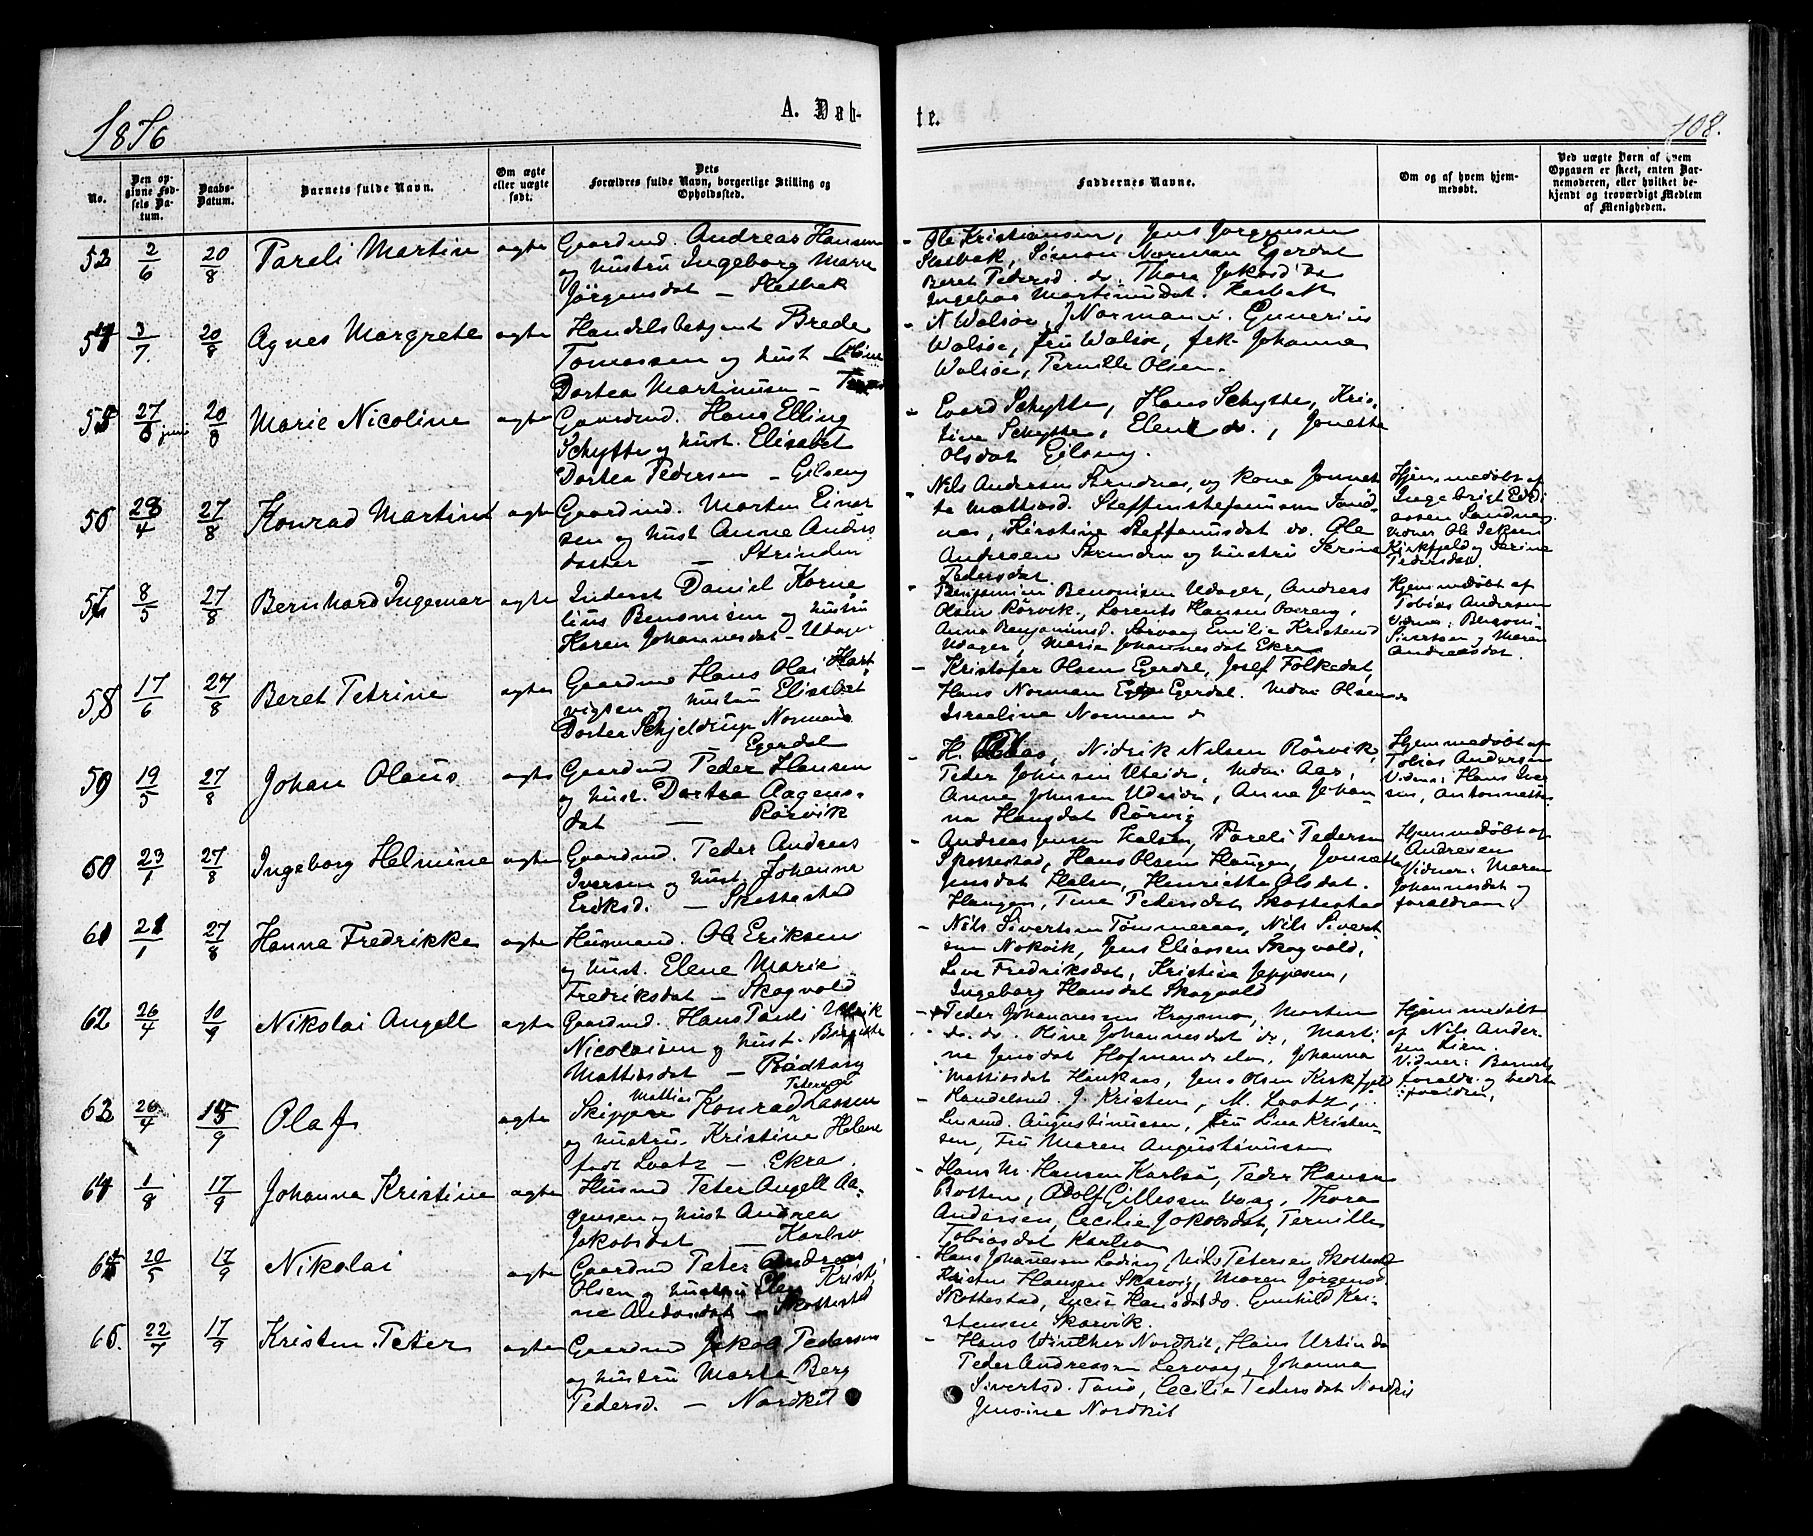 1876
A. Døb-
te.
108.
No.
Den op-
givne Fød-
sels Da-
tum.
Daabs-
Datum.
Barnets fulde Navn.
Om ægte
eller uægte
født.
Dets
Forældres fulde Navn, borgerlige Stilling og
Opholdssted.
Faddernes Navne.
Om og af hvem hjem-
medøbt.
Ved uægte Børn af hvem
Opgaven er skeet, enten Bar-
nemoderen, eller hvilket be-
kjendt og troværdigt Medlem
af Menigheden.
53 2/6 20/8 Pareli Martin ægte
Gaardmd. Andreas Hansen
og hustru Ingeborg Marie
Jörgensdat — Slatbak
- Ole Kristiansen, Jens Jörgensen
Slatbak, Simon Norman Egerdal
Beret Pedersd. do. Thora Jakobsd
Ingeborg Martinusdat.
54 3/7 20/8 Agnes Margrete ægte
Handelsbetjent Brede
Tomassen og hust
Dortea Martinusen —
- N Walsöe, J Normann. Gunerius
Walsöe, fru Walsöe, frk. Johanna
Walsöe, Pernille Olsen.
55 27/6 juni 20/8 Marie Nicoline ægte
Gaardmd. Hans Elling
Schytte og hust. Elisabet
Dortea Pedersen — Eilseng
- Evard Schytte, Hans Schytte, Kris-
tine Schytte, Elene do., Jonette
Olsdat Eilseng.
56 28/4 27/8 Konrad Martin ægte
Gaardmd. Morten Einar
sen og hust Anne Anders
datter — Strinden
- Nils Andersen Strindnes, og kona Jonnet
ta Mattiasd. Steffen Stefanusen Sand-
nes, Kirstine Steffanusdat do. Ole
Andersen Strinden og hustru Serine
Pedersdat.
Hjemmedøbt af
Ingebrigt
assen Sandnes.
Vidner Ole Jensen
Kirkfjeld og Serine
Pedersdat.
57 8/5 27/8 Bernhard Ingemar ægte
Inderst Daniel Korne
lius Benonisen og hustru
Karen Johannesdat — Udager
- Benjamin Benonisen Udager, Andreas
Olsen Rörvik, Lorents Hansen
Anna Benjaminsd. Emilie Kristensd
Udager, Maria Johannesdat Ekra
Hjemmedøbt af
Tobias Andersen
Vidner: Benoni
Sivertsen og Maren
Andreasdat.
58 17/6 27/8 Beret Petrine ægte
Gaardmd Hans Olai Hart
vigsen og hustru Elisabet
Dortea Schjeldrup Norman
Egerdal
- Kristofer Olsen Egerdal, Josef Folkedal,
Hans Norman Egerdal. Olsen do
Israeline Norman do
59 19/5 27/8 Johan Olaus ægte
Gaardmd Peder Hansen
og hust. Dortea Aagens-
dat — Rörvik
- H. Nidrik Nilsen Rörvik,
Peder Johnsen Uteide,
Anna Johnsen Udeide, Anne Johan
na Hansdat Rörvig
Hjemmedøbt af
Tobias Andersen
Vidner: Hans Iver
sen, Antonnette
60 23/1 27/8 Ingeborg Helmine ægte
Gaardmd. Peder Andreas
Iversen og hust Johanna
Eriksd. — Skottestad
- Andreas Jensen Halsen, Pareli Pedersen
Skottestad, Hans Olsen Haugen, Jonetta
Jensdat Halsen, Henriette Olsdat.
Haugen, Tina Pedersdat Skottestad
Hjemmedøbt af
Andresen
Vidner: Maren
Johannesdat og
forældrene
61 21/1 27/8 Hanna Fredrikke ægte
Husmand. Ole Eriksen
og hust. Elene Marie
Fredriksdat — Skogvold
- Nils Sivertsen Tömmeraas, Nils Sivert
sen Nokvik, Jens Eliassen Skogvold,
Live Fredriksdat, Kristina Jeppesen,
Ingeborg Hansdat Skogvold
62 26/4 10/9 Nikolai Angell ægte
Gaardmd. Hans Pareli Ulrik
Nicolaisen og hust. Birgitte
Mattisdat — Rödtang
- Peder Johannessen Kragmo, Morten
do. do. Rine Johannesdat do, Marti
ne Jensdat Hofmandselen, Johanna
Mattisdat Hankaas, Jens Olsen Kirkfjeld
Hjemmedøbt
af Nils Ander-
sen Lien.
Vidner: Barnets
foreldr. og bedste
foreldre,
63 26/4 15/9 Olaf ægte
Skipper Mattias Konrad Petersen Lassen
og hustru. Kristine Helene
født Laatz — Ekra.
- Handelsmd. J. Kristen, M. Laatz,
Lensmd. Augustinussen, fru Lina Kristen-
sen, Fru Maren Augustinussen
64 1/8 17/9 Johanna Kristine ægte
Husmd Peter Angell Aa-
gensen og hust Andrea
Jakobsdat — Karlsö
- Hans M. Hansen Karlsö, Peder Hansen
Botten, Adolf Gillessen Vaag, Thora
Andersen, Cecilie Jakobsdat, Pernille
Tobiasdat Karlsö
65 20/5 17/9 Nikolai ægte
Gaardmd Peter Andreas
Olsen og hustru Elen Kristi
ne — Skottestad
- Hans Johannesen Löding, Nils Petersen Skottestad
Kristen Hansen Skarvig, Maren Jörgensd
Skottestad, Lucie Hansdat do. Gunhild Kri-
stensen Skarvik.
66. 22/7 17/9 Kristen Peter ægte
Gaardmd Jakob Pedersen
og hustru Marta Berg
Pedersd. — Nordkil
- Hans Winther Nordkil, Hans Urtin do
Peder Andreassen Lervaag, Johanna
Sivertsd. Tanö, Cecilie Pedersdat Nordkil
Jensine Nordkil